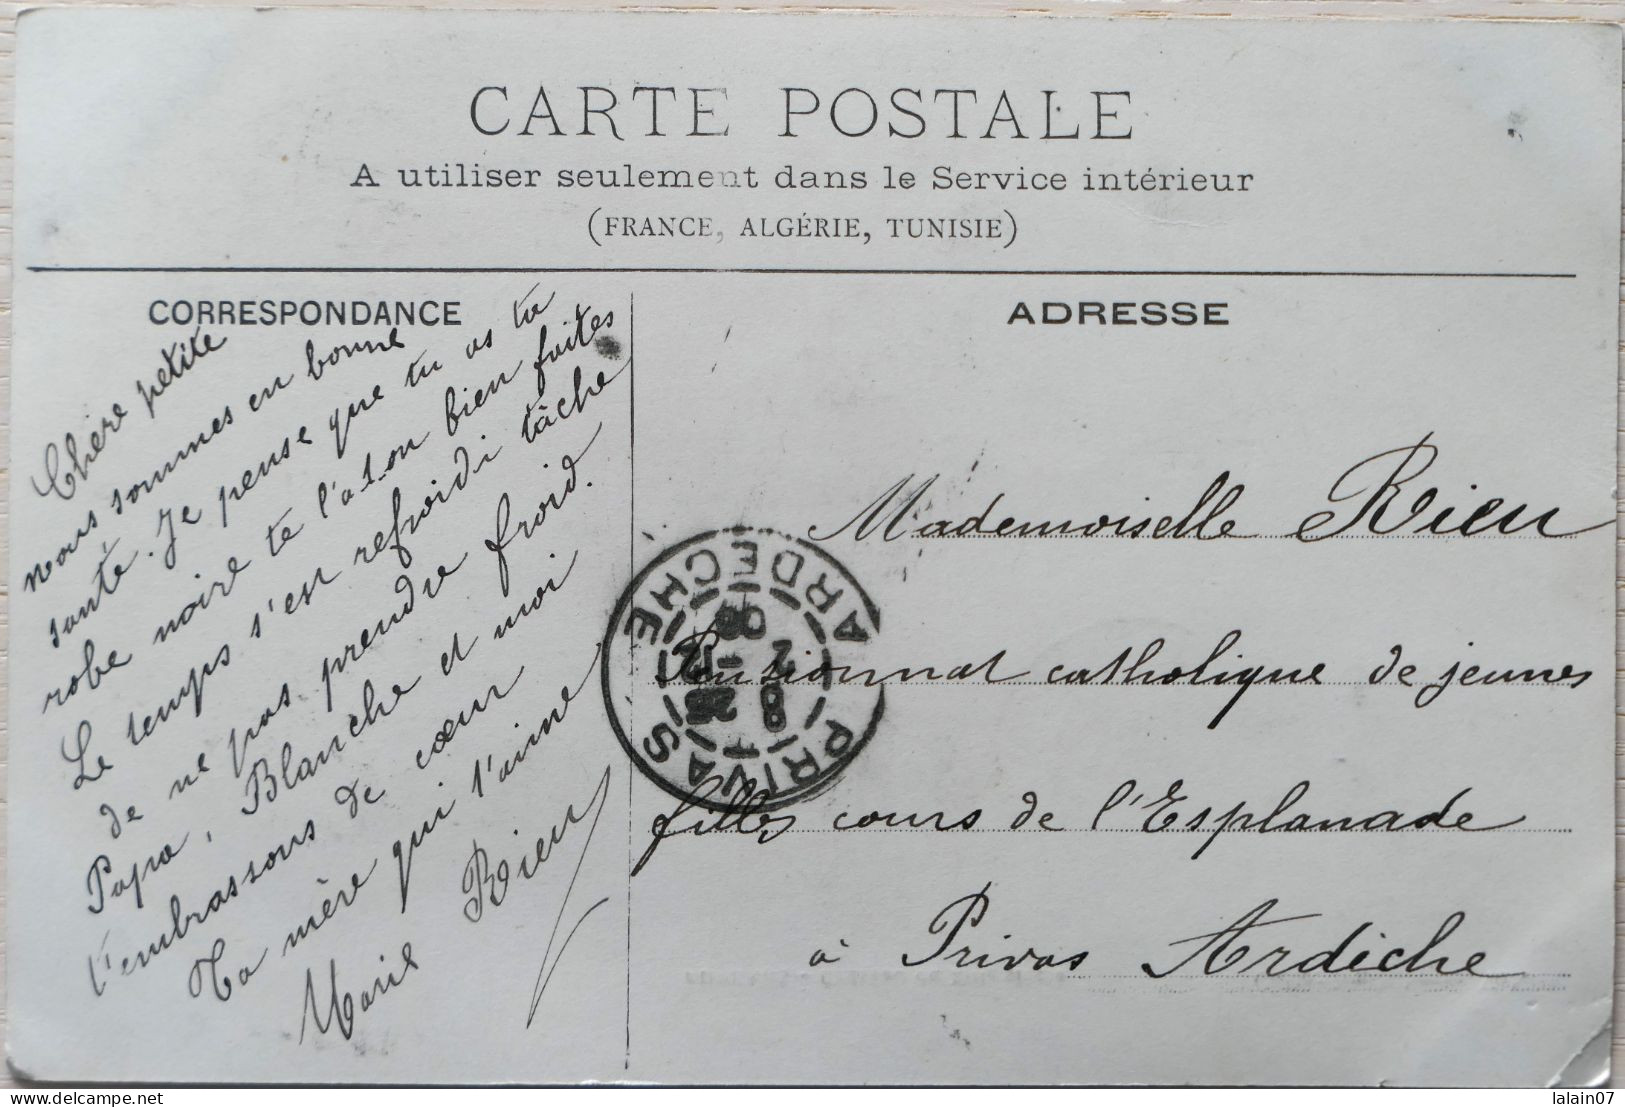 CARTE POSTALE
A utiliser seulement dans le Service intérieur
(FRANCE, ALGÉRIE, TUNISIE)
CORRESPONDANCE
Chère petite
nous sommes en bonne
santé. Je pense que tu as ta
robe noire te l'a ton bien faites
Le temps s'est refroidi tâche
de ne pas prendre froid.
Papa, Blanche et moi
t'embrassons de cœur
Ta mère qui t'aime
Marie Rieu
ADRESSE
Mademoiselle Rieu
Pensionnat catholique de jeunes
filles cours de l'Esplanade
à Privas Ardèche
PRIVAS ARDECHE
delcampe.net
lalain07